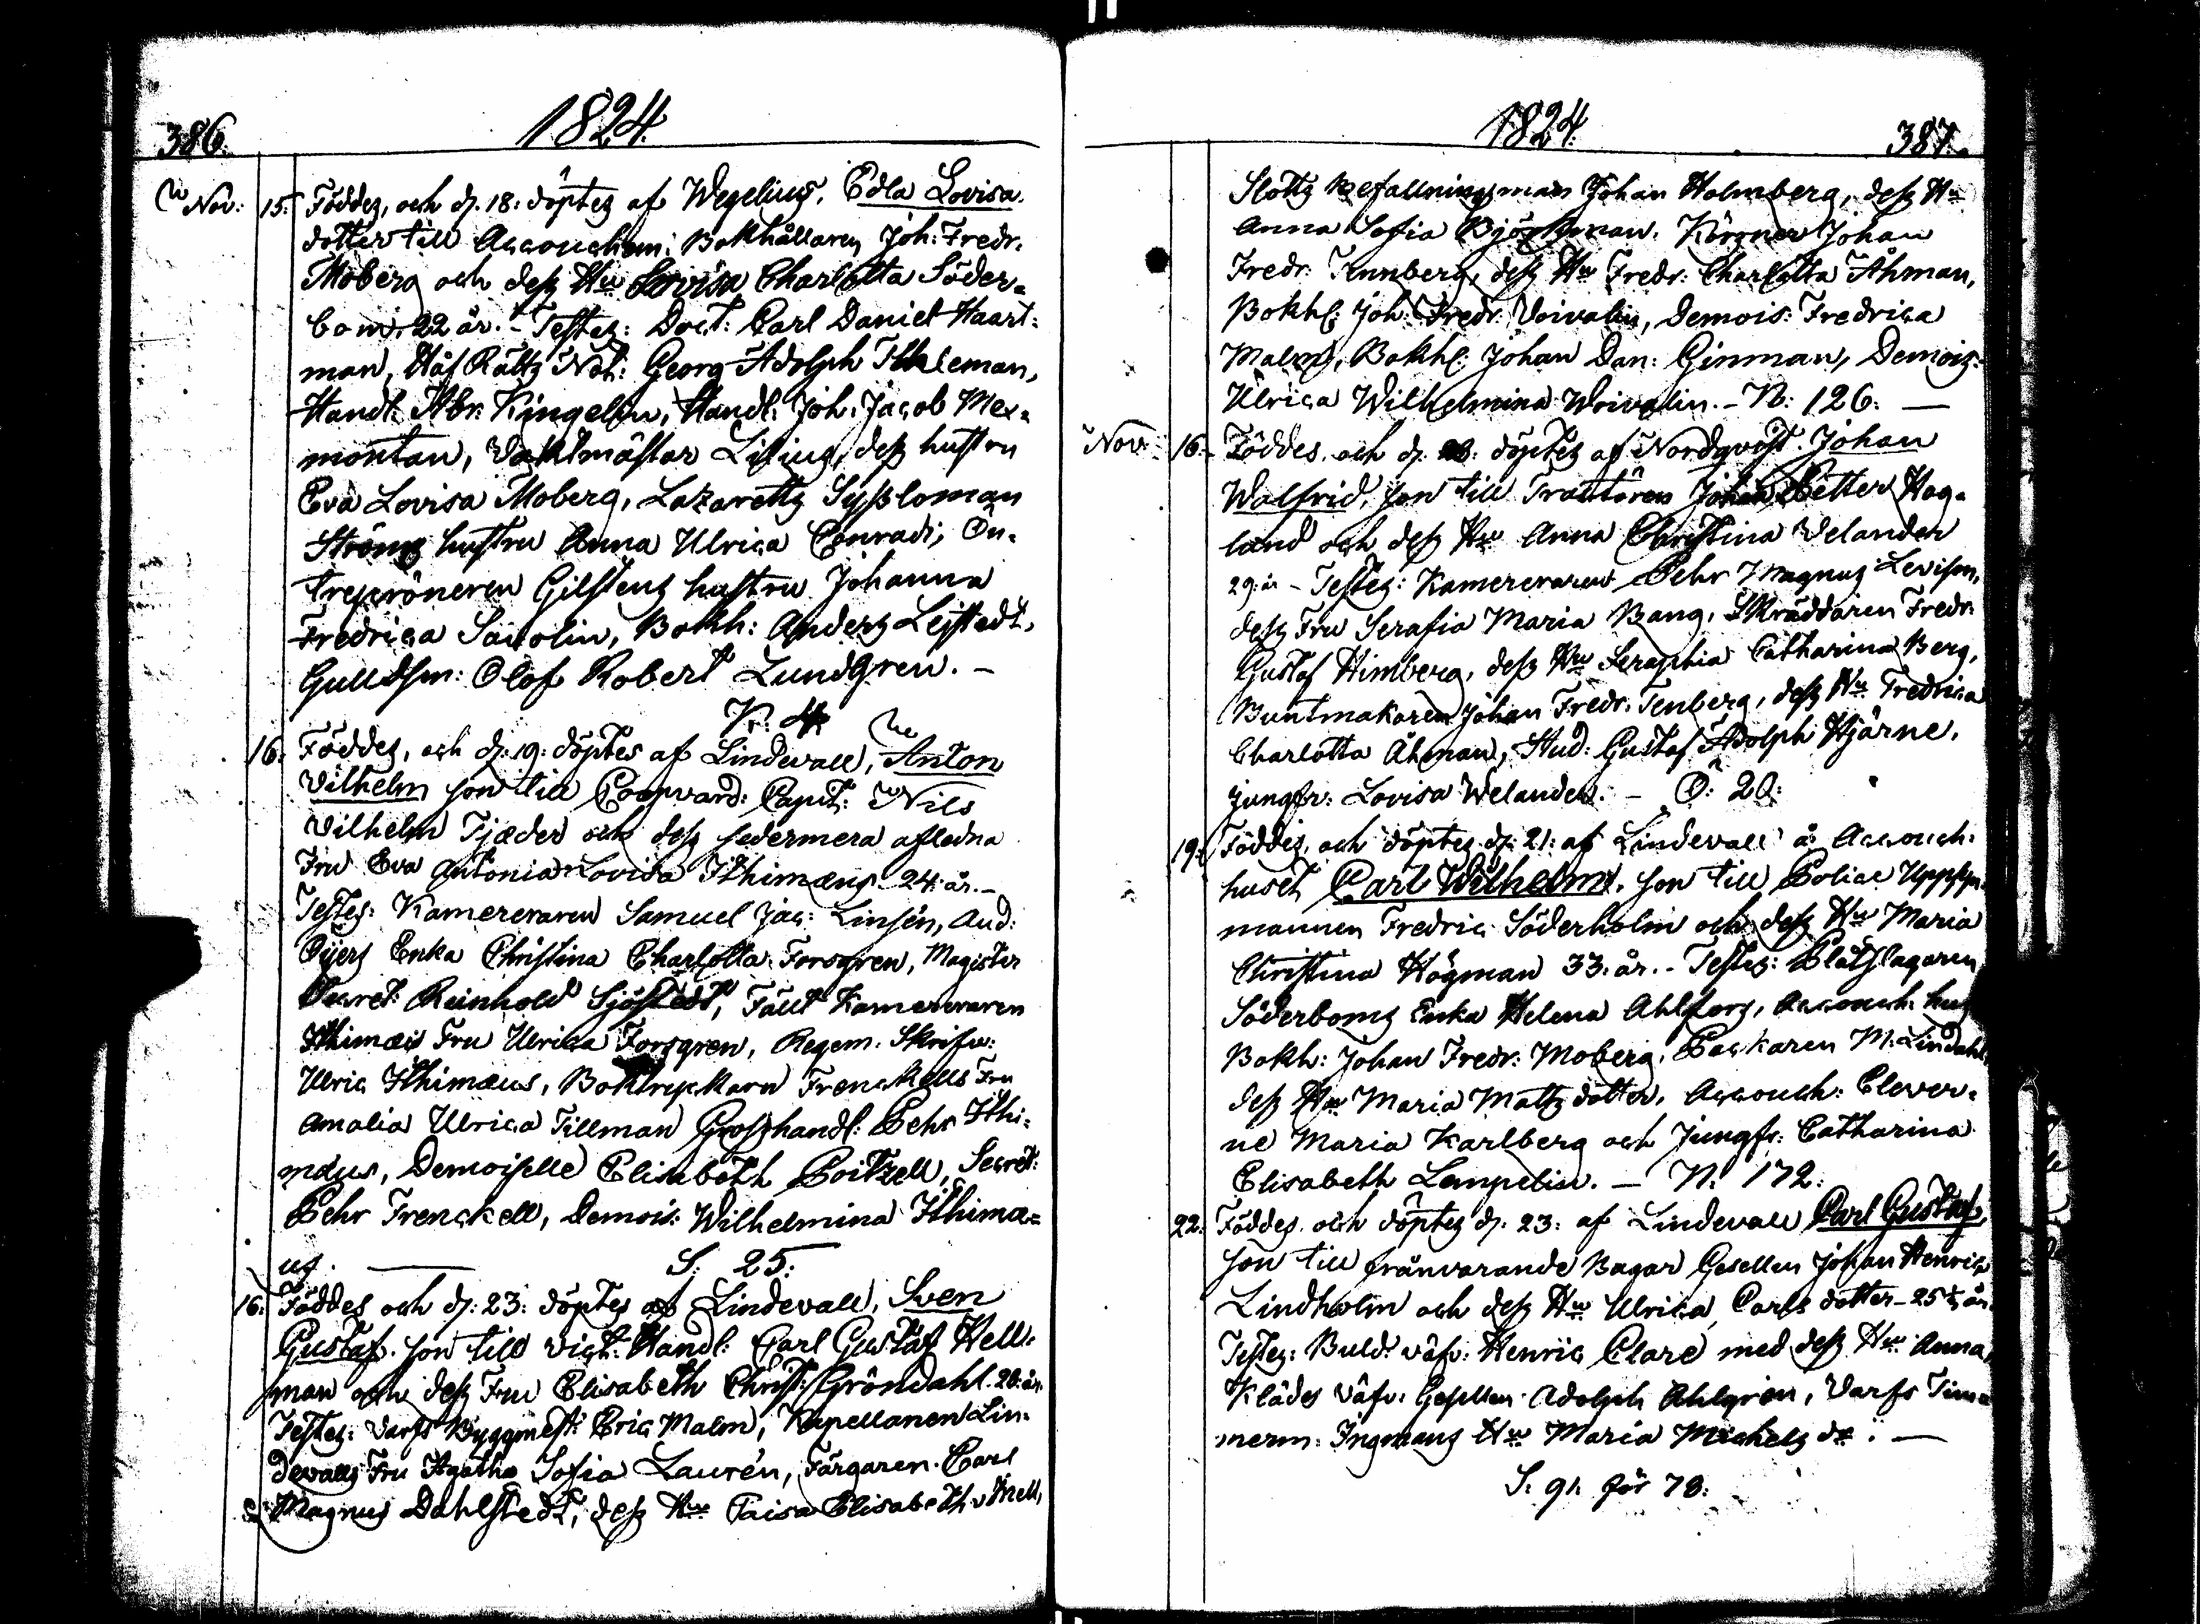 386.
1824.
Nov: 15. Föddes, och d. 18: döptes af Wegelius, Edla Lovisa.
dotter till Accouchem: Bokhållaren Joh: Fredr.
Moberg och dess Hu Lovisa Charlotta Söder-
bom, 22 år. - Testes: Doct: Carl Daniel Haart-
man, Håf Rätts Not: Georg Adolph Ithleman,
Handl: Abr: Kingelin, Handl: Joh: Jacob Mex-
montan, Vaktmästar Lilius, dess hustru
Eva Lovisa Moberg, Lazaretts Syssloman
Ströms hustru Anna Ulrica Conradi, En-
treprenören Gilstens hustru Johanna
Fredrica Savolin, Bokh: Anders Lejstedt,
Guldsm: Olof Robert Lundgren. -
K: 4
16. Föddes, och d: 19: döptes af Lindevall, Anton
Vilhelm son till Coopvard: Capit: Nils
Vilhelm Tjæder och dess sedermera afledna
Fru Eva Antonia Lovisa Ithimæus 24 år. -
Testes: Kamereraren Samuel Jac: Linsén, Aud:
Enka Christina Charlotta Forsgren, Magister
Secret: Reinhold Sjöstedt, Fält Kamereraren
Ithimæi Fru Ulrica Forsgren, Regem. Skrifv:
Ulric Ithimæus, Boktryckarn Frenckells Fru
Amalia Ulrica Tillman Grosshandl: Pehr Ithi-
mæus, Demoiselle Elisabeth Poitzell, Secret:
Pehr Frenckell, Demois: Wilhelmina Ithimæ-
us. S: 25:
16: Föddes och d: 23: döptes af Lindevall, Sven
Gustaf. son till Vict: Handl: Carl Gustaf Hell-
man och dess Fru Elisabeth Christ: Gröndahl. 26: år
Testes: Varfs Byggmest: Eric Malm, Kapellanen Lin-
devalls Fru Agatha Sofia Laurén, Färgaren Carl
Magnus Dahlstedt, dess Hu Caisa Elisabeth Snell,
1824.
387.
Slotts Befallningsman Johan Holmberg, dess Hu
Anna Sofia Björkman. Körsner Johan
Fredr: Tennberg, dess Hu Fredr: Charlotta Åhman,
Bokhl: Joh: Fredr: Voivalin, Demois: Fredrica
Malm, Bokhl: Johan Dan: Ginman, Demois:
Ulrica Wilhelmina Woivalin. - N: 126: -
Nov: 16. Föddes och d. 20: döptes af Nordqvist. Johan
Walfrid, son till Traktören Johan Petter Hag-
lund och dess Hu Anna Christina Velander
29: år - Testes: Kamereraren Pehr Magnus Levison,
dess Fru Serafia Maria Bang, Skräddaren Fredr:
Gustaf Himberg, dess Hu Seraphia Catharina Berg,
Buntmakaren Johan Fredr: Tenberg, dess Hu Fredrica
Charlotta Åhman, Stud: Gustaf Adolph Hjärne,
jungfr: Lovisa Welander. - Ö: 20:
19. Föddes, och döptes d: 21: af Lindevall å Accouch:
huset Carl Wilhelm. son till Police Uppsyn-
mannen Fredric Söderholm och dess Hu Maria
Christina Högman 33. år. - Testes: Plåtslagaren
Söderboms Enka Helena Ahlfors, Accouch: hus
Bokh: Johan Fredr: Moberg, Packaren M: Lindahl,
dess Hu Maria Matts dotter, Accouch: Elever-
ne Maria Karlberg och Jungfr: Catharina
Elisabeth Lempelin. - N: 172:
22. Föddes och döptes d: 23: af Lindevall Carl Gustaf,
son till frånvarande Bagar Gesellen Johan Henric
Lindholm och dess Hu Ulrica Carls dotter - 25 ½ år.
Testes: Buld: väfv: Henric Clare med dess Hu Anna,
Klädes väfv: Gesellen Adolph Ahlgren, Varfs Tim-
merm: Ingmans Hu Maria Michels dr: -
S: 91. för 78: